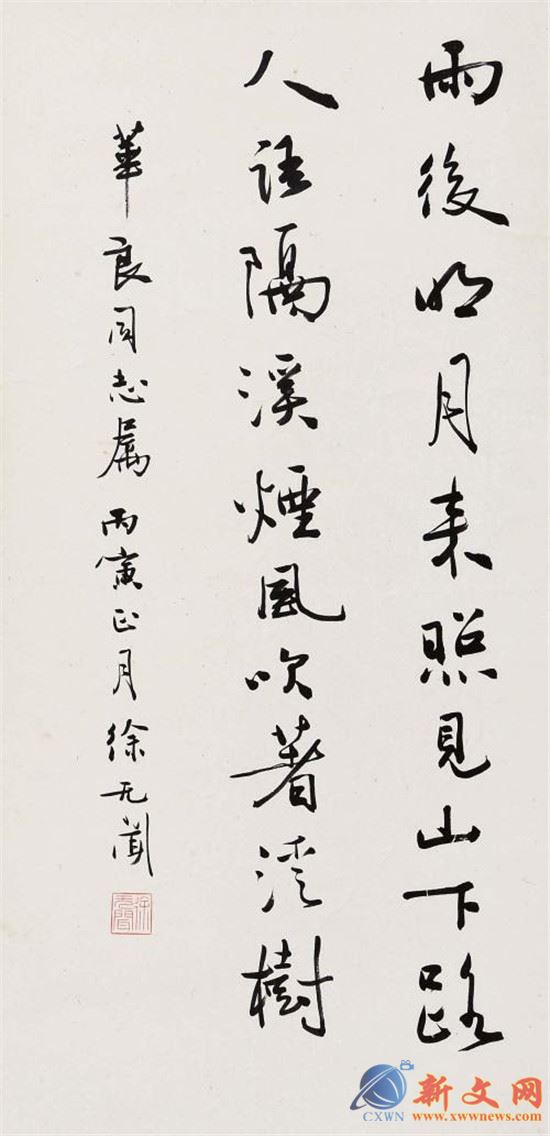 雨後明月来照見山下路
人語隔溪煙風吹著溪樹
華良同志屬 丙寅正月 徐无聞
徐无聞
CXWN
新文网
www.xwwnews.com